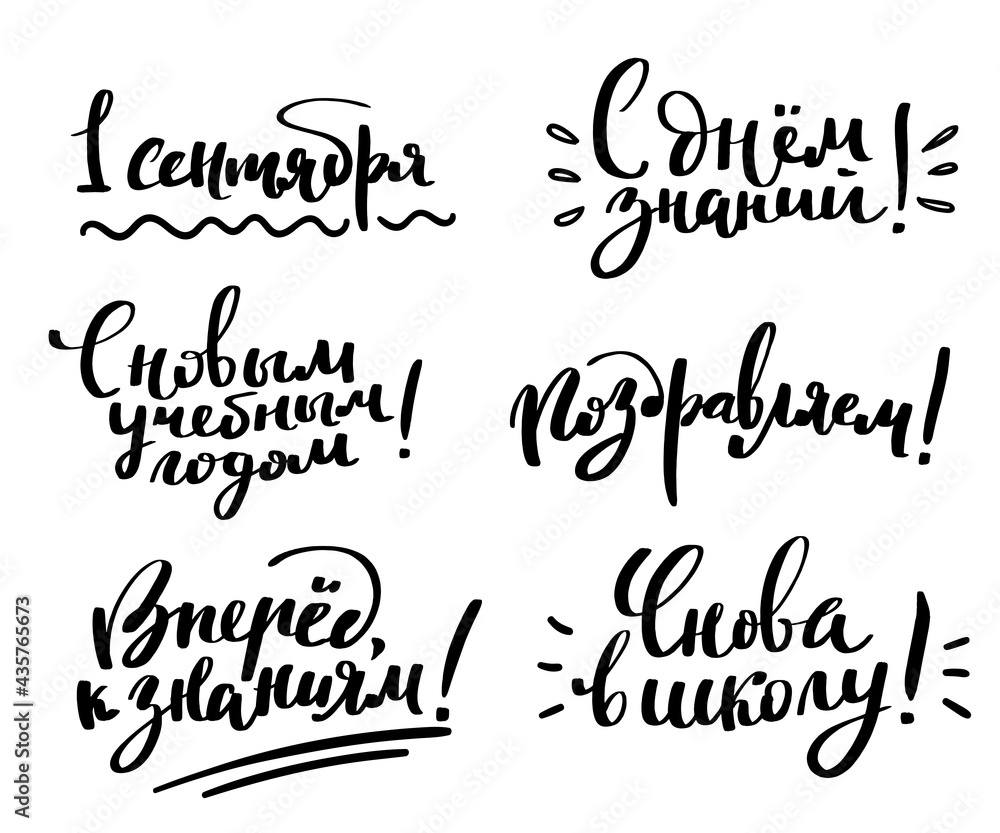 1 сентября
С днём
знаний!
С новым
учебным
годом!
Поздравляем!
Вперёд,
к знаниям!
Снова
в школу!
Adobe Stock
#435765673